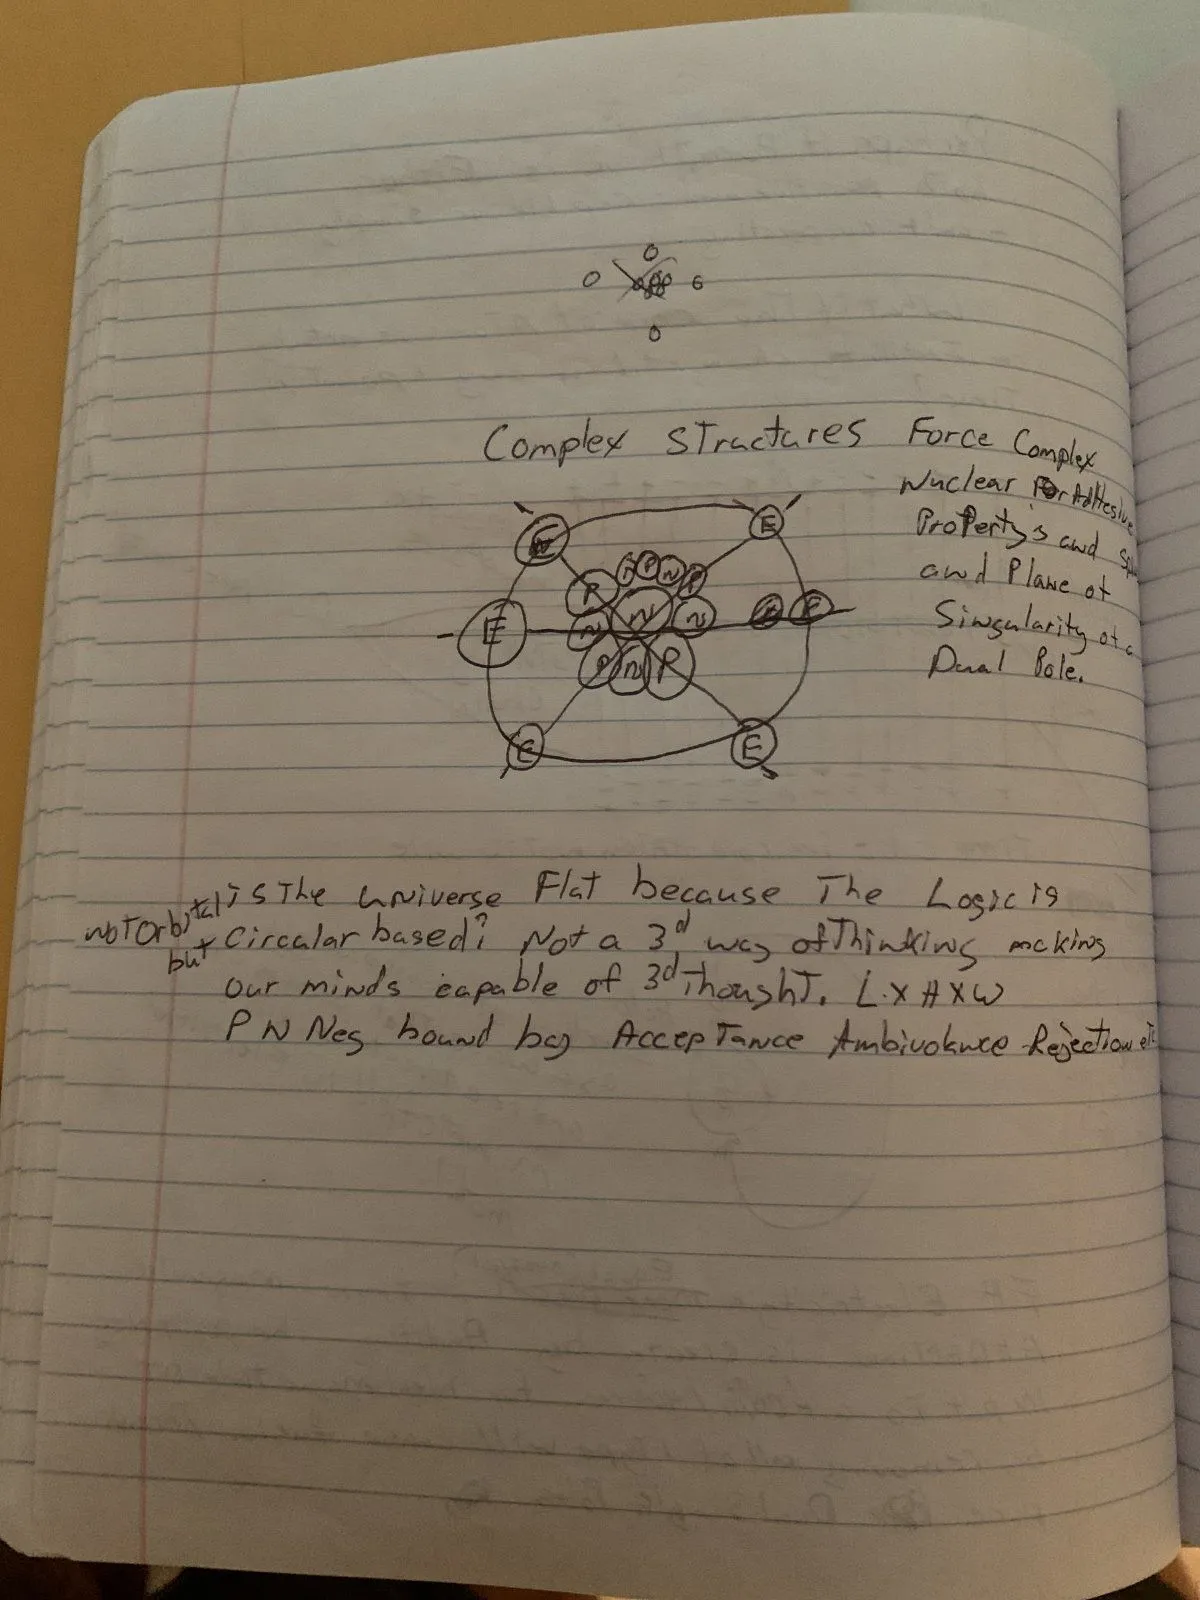 Complex Structures Force Complex
Nuclear For Adhesive
Property's and
and Plane of
Singularity of a
Dual Pole.
E E
P N P N P
E N N N E E
P N P
E E
is The universe Flat because The Logic is
not Orbital but
Circular based? Not a 3d way of Thinking making
our minds capable of 3d Thought. L x H x W
P N Neg bound by Acceptance Ambivolence Rejection etc